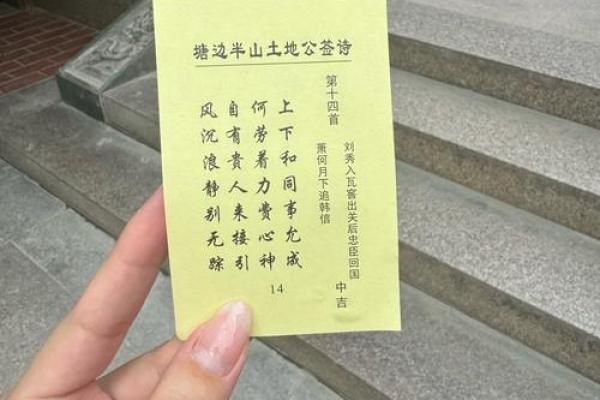 塘边半山土地公签诗
第十四首
刘秀入瓦窖出关后忠臣回国
萧何月下追韩信
中吉
上下和同事允成
何劳着力费心神
自有贵人来接引
风沉浪静别无踪
14